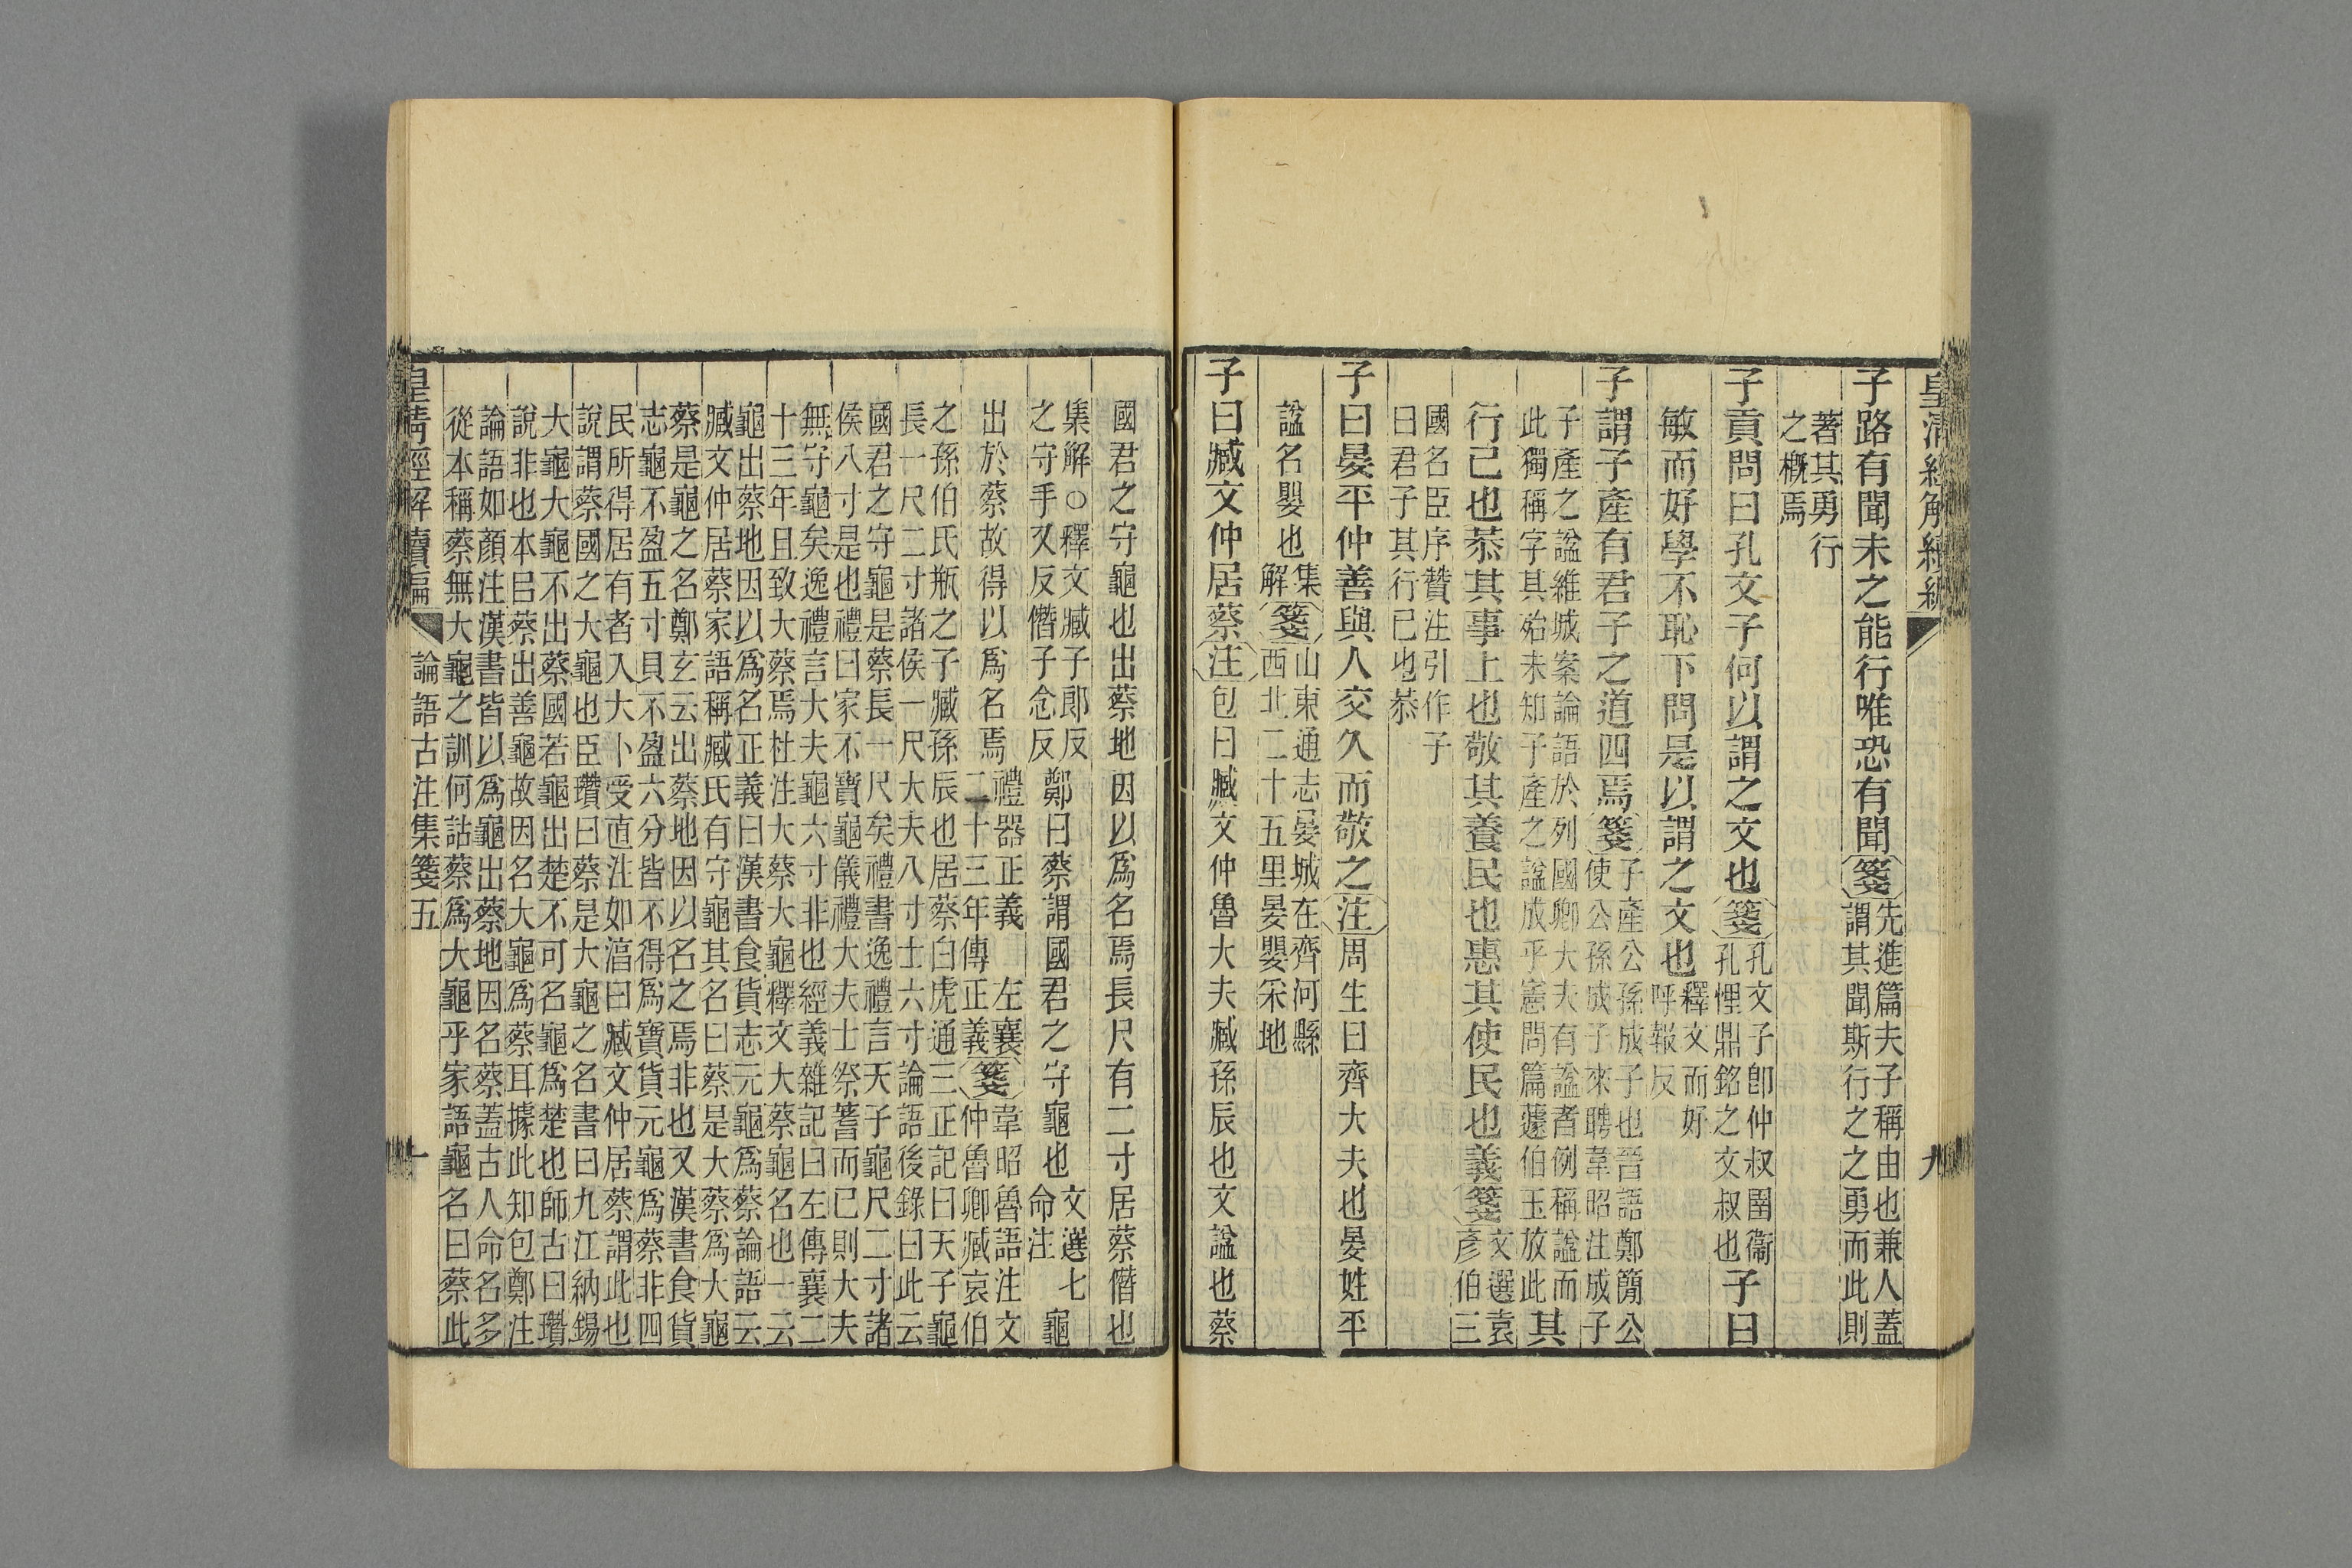 皇清經解續編
九
子路有聞未之能行唯恐有聞箋先進篇夫子稱由也兼人蓋
謂其聞斯行之之勇而此則
著其勇行
之概焉
子貢問曰孔文子何以謂之文也箋孔文子卽仲叔圉衞
孔悝鼎銘之文叔也子曰
敏而好學不恥下問是以謂之文也釋文而好
呼報反
子謂子產有君子之道四焉箋子產公孫成子也晉語鄭簡公
使公孫成子來聘韋昭注成子
子產之諡維城案論語於列國卿大夫有諡者例稱諡而
此獨稱字其殆未知子產之諡成乎憲問篇蘧伯玉放此其
行己也恭其事上也敬其養民也惠其使民也義箋文選袁
彥伯三
國名臣序贊注引作子
曰君子其行已也恭
子曰晏平仲善與人交久而敬之注周生曰齊大夫也晏姓平
諡名嬰也集
解箋山東通志晏城在齊河縣
西北二十五里晏嬰采地
子曰臧文仲居蔡注包曰臧文仲魯大夫臧孫辰也文諡也蔡
國君之守龜也出蔡地因以爲名焉長尺有二寸居蔡僭也
集解○釋文臧子郎反
之守手又反僭子念反鄭曰蔡謂國君之守龜也文選七
命注龜
出於蔡故得以爲名焉禮器正義左襄
二十三年傳正義箋韋昭魯語注文
仲魯卿臧哀伯
之孫伯氏瓶之子臧孫辰也居蔡白虎通三正記曰天子龜
長一尺二寸諸侯一尺大夫八寸士六寸論語後錄曰此云
國君之守龜是蔡長一尺矣禮書逸禮言天子龜尺二寸諸
侯八寸是也禮曰家不寶龜儀禮大夫士祭筮而已則大夫
無守龜矣逸禮言大夫龜六寸非也經義雜記曰左傳襄二
十三年且致大蔡焉杜注大蔡大龜釋文大蔡龜名也一云
龜出蔡地因以爲名正義曰漢書食貨志元龜爲蔡論語云
臧文仲居蔡家語稱臧氏有守龜其名曰蔡是大蔡爲大龜
蔡是龜之名鄭玄云出蔡地因以名之焉非也又漢書食貨
志龜不盈五寸貝不盈六分皆不得爲寶貨元龜爲蔡非四
民所得居有者入大卜受直注如湻曰臧文仲居蔡謂此也
說謂蔡國之大龜也臣瓚曰蔡是大龜之名書曰九江納錫
大龜大龜不出蔡國若龜出楚不可名龜爲楚也師古曰瓚
說非也本㠯蔡出善龜故因名大龜爲蔡耳據此知包鄭注
論語如顏注漢書皆以爲龜出蔡地因名蔡蓋古人命名多
從本稱蔡無大龜之訓何詁蔡爲大龜乎家語龜名曰蔡此
皇清經解續編
論語古注集箋五
十